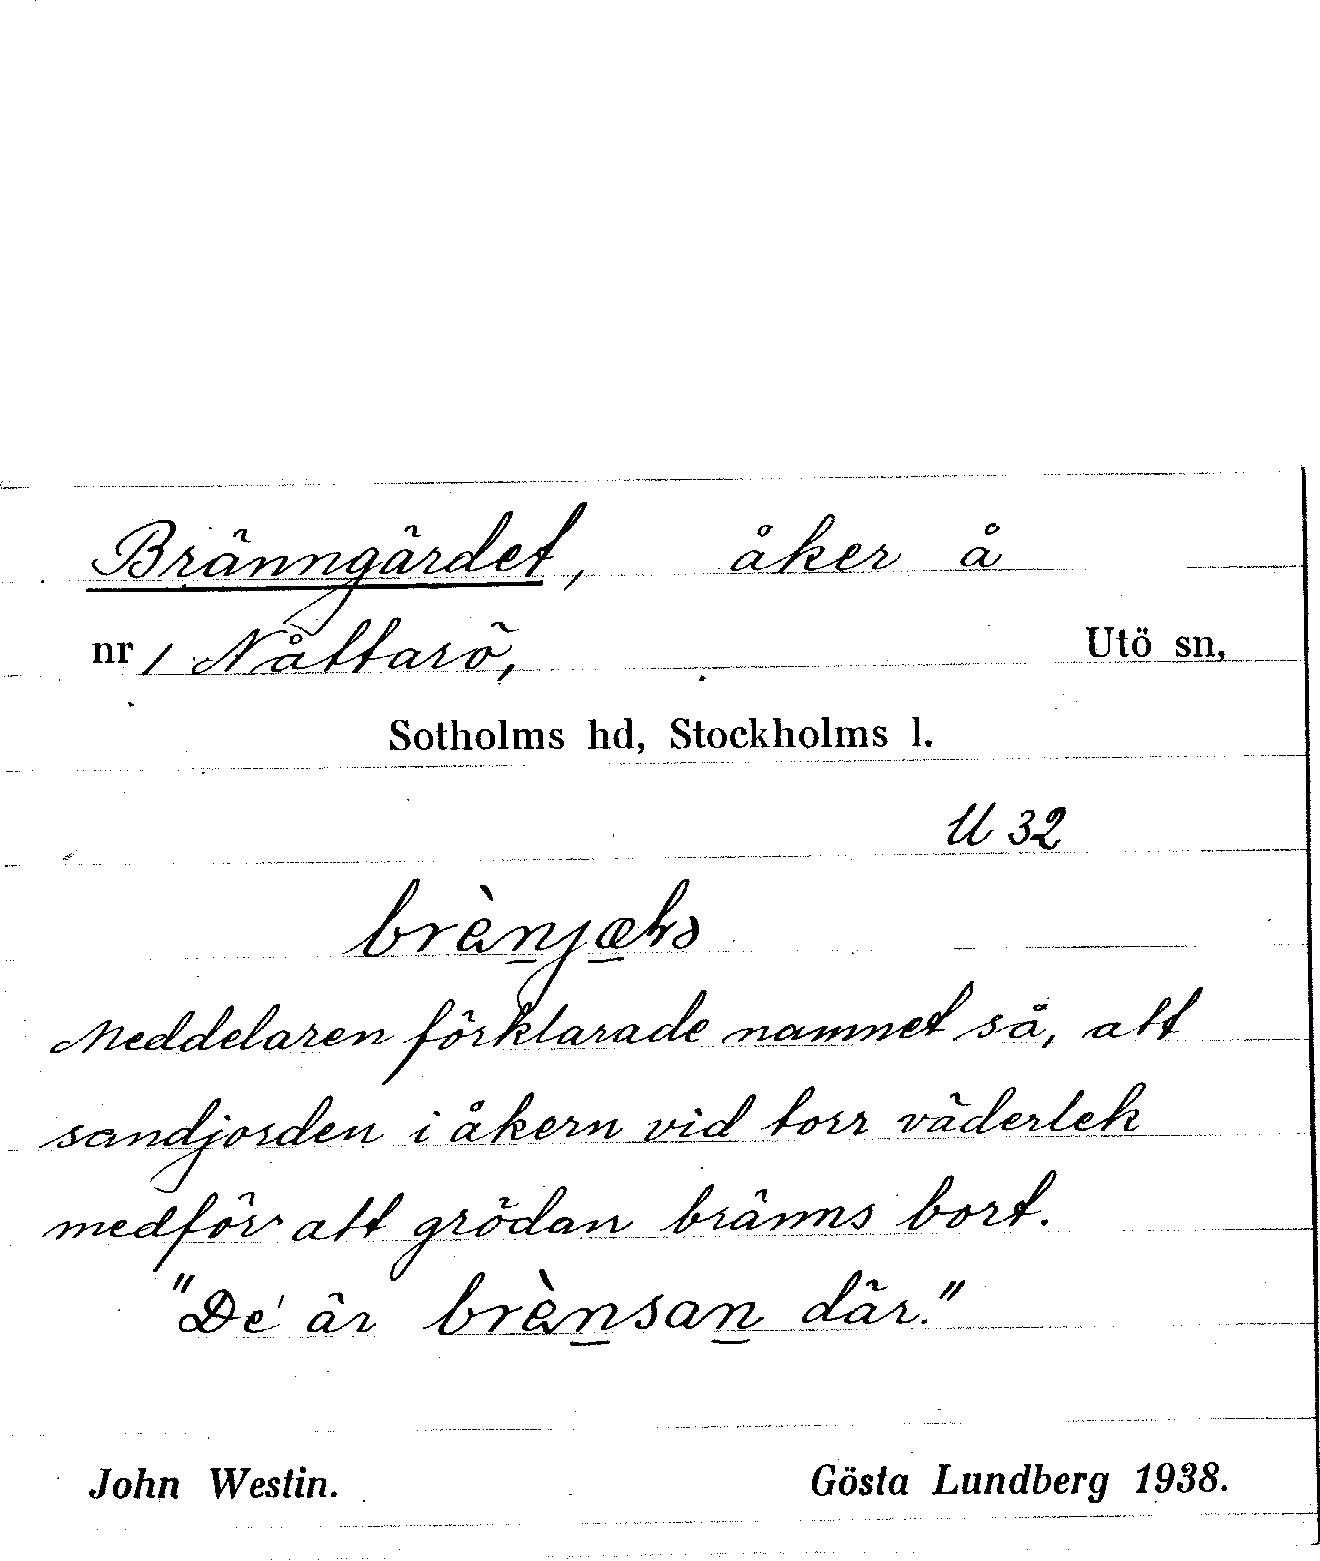 Bränngärdet, åker å
nr 1 Nåttarö, Utö sn,
Sotholms hd, Stockholms l.
U 32
Meddelaren förklarade namnet så, att
sandjorden i åkern vid torr väderlek
medför att grödan bränns bort.
"De' är brènsan där."
John Westin. Gösta Lundberg 1938.